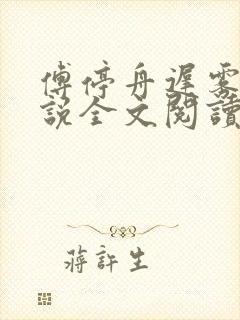 傅停舟遲雾
說全文閱讀
蔣許生